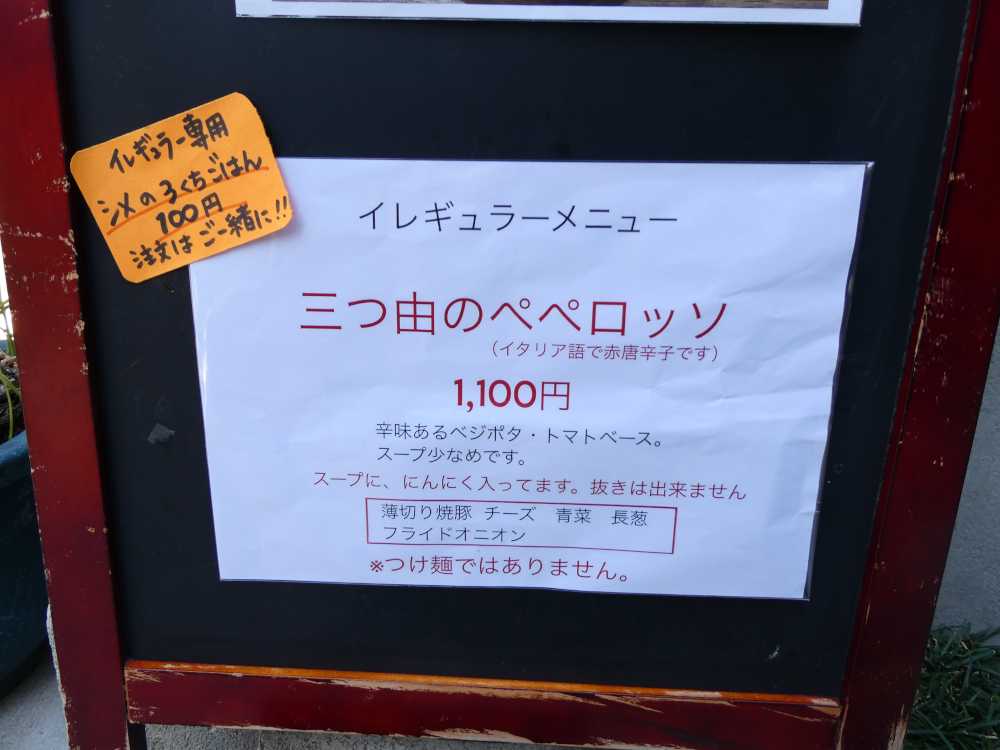 イレギュラー専用
シメの3くちごはん
100円
注文はご一緒に!!
イレギュラーメニュー
三つ由のペペロッソ
（イタリア語で赤唐辛子です）
1,100円
辛味あるベジポタ・トマトベース。
スープ少なめです。
スープに、にんにく入ってます。抜きは出来ません
薄切り焼豚 チーズ 青菜 長葱
フライドオニオン
※つけ麺ではありません。